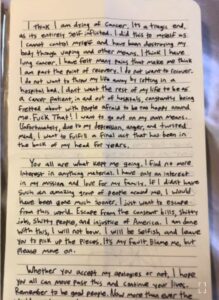 I think I am dying of Cancer. Its a tragic end,
as its entirely self inflicted. I did this to myself as
I cannot control myself and have been destroying my
body through vaping and other means. I think I have
lung cancer, I have felt many pains that make me think
I am past the point of recovery. I do not want to recover.
I do not want to throw my life away by sitting in a
hospital bed, I dont want the rest of my life to be as
a Cancer patient, in and out of hospitals, constantly being
fretted about with people afraid to be too happy around
me. Fuck That! I want to go out on my own means.
Unfortunately, due to my depression, anger, and twisted
mind, I want to fulfill a final act that has been in
the back of my head for years.
You all are what kept me going. I find no more
interest in anything material. I have only an interest in
in my mission and love for my family. If I didnt have
such an amazing group of people around me, I would
have been gone much sooner. I just want to escape
from this world. Escape from the constant bills, shitty
jobs, shitty people, and injustice of America. I am done
with this, I will not hour. I will be selfish and leave
you to pick up the pieces. Its my fault. Blame me, but
please move on.
Whether you accept my apologies or not, I hope
you all can move past this and continue your lives.
Remember to be good people. Now more than ever the